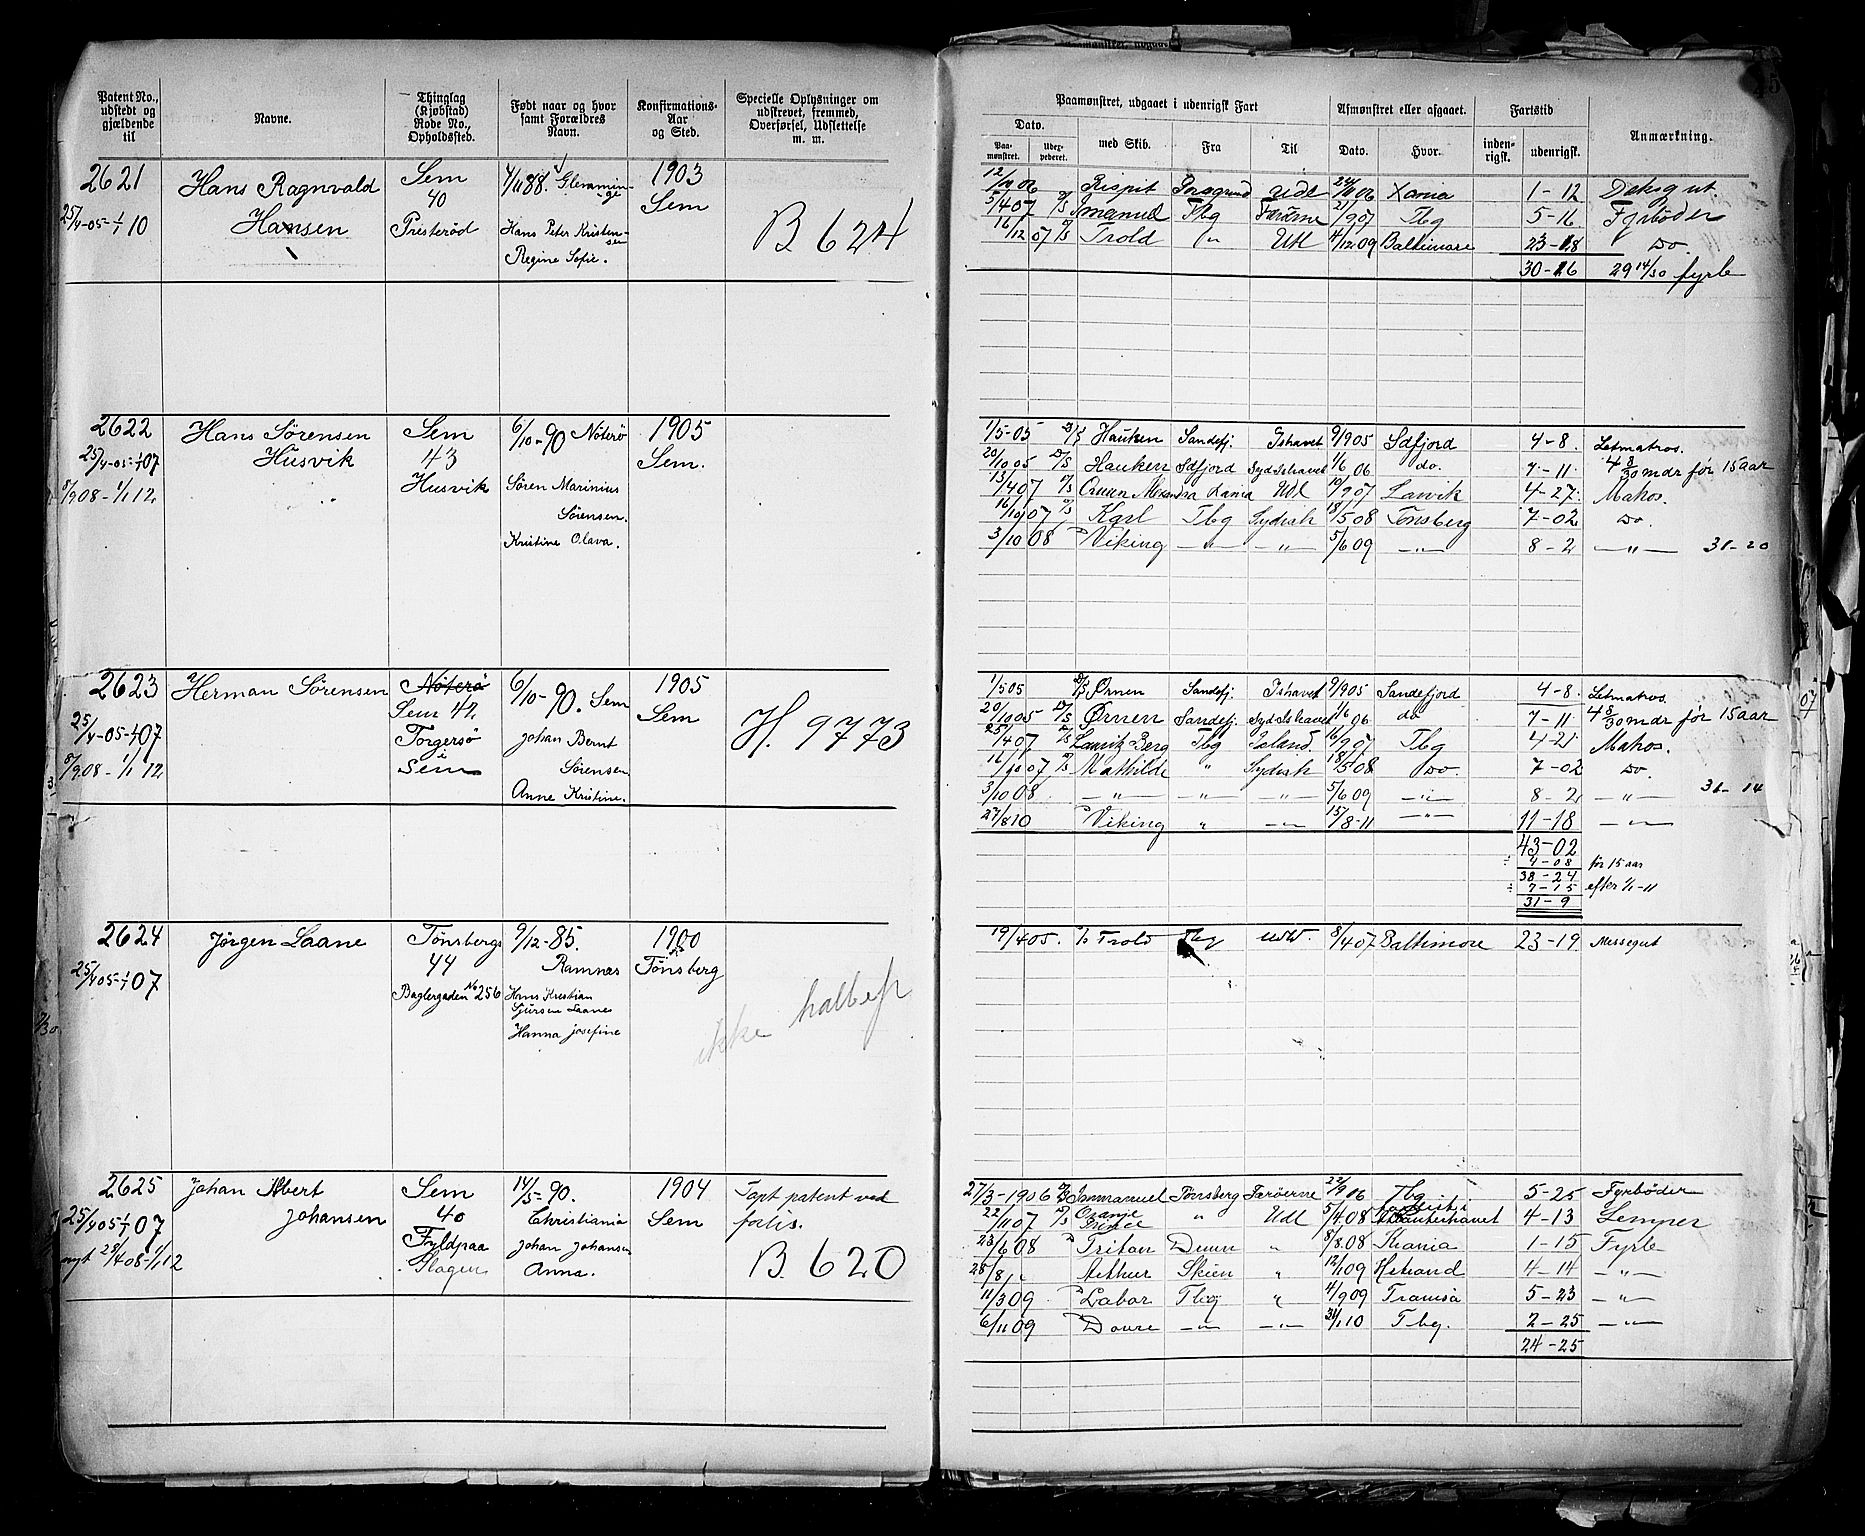 Patent No., udstedt og gjældende til
Navne.
Thinglag (Kjøbstad) Rode No., Opholdssted.
Født naar og hvor samt Forældres Navn.
Konfirmations-Aar og Sted.
Specielle Oplysninger om udstrevet, fremmed, Overførsel, Udslettelse m. m.
Paamønstret, udgaaet i udenrigsk Fart
Afmønstret eller afgaaet.
Fartstid
Anmærkning.
Dato.
Paa-mønstret.
med Skib.
Fra
Til
Dato.
Hvor.
inden-rigsk.
udenrigsk.
2621
25/4-05-1/1 10
Hans Ragnvald
Hansen
Sem
40
Presterød
4/11 88. Glemminge
Hans Peter Kristensen
Regine Sofie.
1903
Sem
B 624
12/11 06 Rispit Porsgrund Udl 24/11 06 Xania 1-12 Dæksgut
5/4 07 Imanuel Tbg Færøerne 21/9 07 Tbg 5-16 Fyrbøder
16/12 07 Trold " Utl 4/12 09 Baltimore 23-18 Do.
30-16 29 14/30 fyrb
2622
25/4-05-1/1 07
8/9 08-1/1 12
Hans Sørensen
Husvik
Sem
43
Husvik
6/10-90 Nøterø
Søren Marinius
Sørensen.
Kristine Olava.
1905
Sem.
1/5-05 Hauken Sandefj. Ishavet 9/9 05 Sdfjord 4-8. Letmatros.
20/10 05 Hauken Sdfjord Syd Ishavet 1/6 06 do. 7-11. 4 8/30 mdr før 15 aar
13/4 07 Ørnen Xania Udl 10/9 07 Larvik 4-27. Matros.
16/10 07 Karl Tbg Sydish 18/5 08 Tønsberg 7-02 Do.
3/10 08 Viking -"- -"- 5/6 09 -"- 8-2 -"- 31-20
2623
25/4-05-1/1 07
8/9 08-1/1 12
Herman Sørensen
Nøterø
Sem 42
Torgersø
i
Sem
6/10-90. Sem
Johan Bernt
Sørensen
Anne Kristine.
1905
Sem
H. 9773
1/5 05 Ørnen Sandefj. Ishavet 9/9 05 Sandefjord 4-8. Letmatros.
20/10 05 Ørnen Sandefj. Syd Ishavet 1/6 06 do 7-11 4 8/30 mdr før 15 aar
25/4 07 Lauritz Berg Tbg Island. 16/9 07 Tbg 4-21 Matros.
16/10 07 Mathilde " Sydish 18/5 08 Do. 7-02 Do.
3/10 08 -"- -"- -"- 5/6 09 -"- 8-2 -"- 31-14
27/8 10 Viking " -"- 15/8-11 -"- 11-18 -"-
43-02
4-08 før 15 aar
38-24
7-15 efter 1/1-11
31-9
2624
25/4 05-1/1 07
Jørgen Laane
Tønsberg
44
Baglergaden No 256
9/12-85.
Ramnes
Hans Kristian
Sjursen Laane
Hanna Josefine
1900
Tønsberg
ikke halvbef
19/4 05. Trold Tbg Udl. 8/4 07 Baltimore 23-19. Messegut
2625
25/4 05 1/1 07
nyt 29/4 08-1/1 12
Johan Albert
Johansen
Sem
40
Fyldpaa
Slagen
14/5-90.
Christiania
Johan Johansen
Anna.
1904
Sem
Tapt patent ved
forlis.
B. 620
27/3-1906 Immanuel Tønsberg Færøerne 22/9 06 Tbg 5-25 Fyrbøder
22/11 07 Oranje Prince " Udl 5/4.08 Atlanterhavet 4-13 Lemper
23/6 08 Tritan " 8/8.08 Xrania 1-15 Fyrb
25/8 " Arthur Skien " 12/1 09 4-14 -"-
11/3 09 Labor Tbg " 4/9 09 Tramsø 5-23 -"-
6/11 09 Dovre -"- -"- 31/1 10 Tbg. 2-25 -"-
24-25